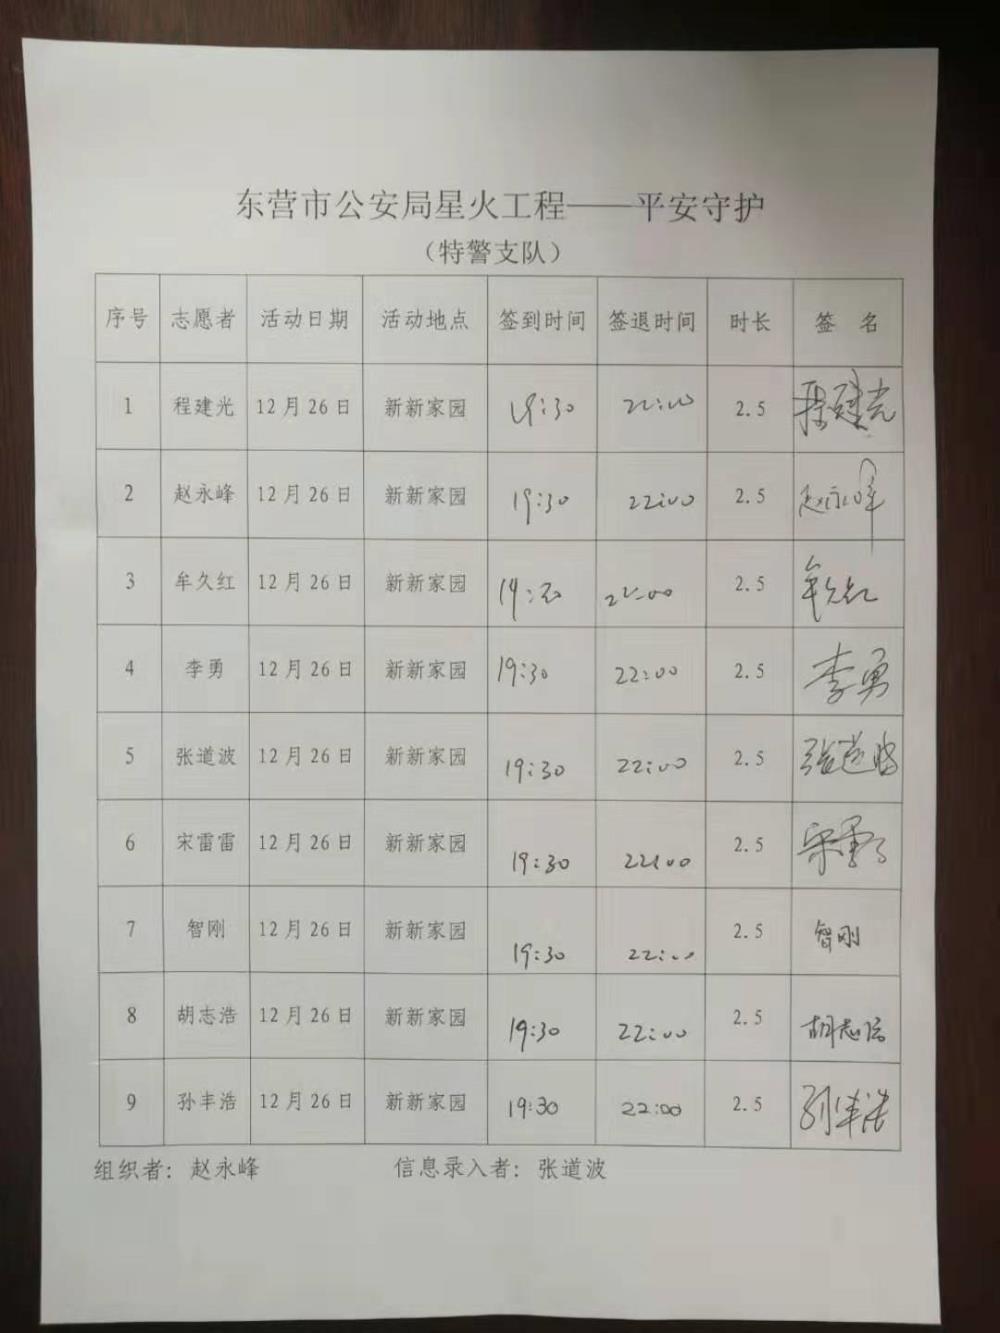 东营市公安局星火工程——平安守护
（特警支队）
序号 志愿者 活动日期 活动地点 签到时间 签退时间 时长 签 名
1 程建光 12月26日 新新家园 19:30 22:00 2.5 程建光
2 赵永峰 12月26日 新新家园 19:30 22:00 2.5 赵永峰
3 牟久红 12月26日 新新家园 19:30 22:00 2.5 牟久红
4 李勇 12月26日 新新家园 19:30 22:00 2.5 李勇
5 张道波 12月26日 新新家园 19:30 22:00 2.5 张道波
6 宋雷雷 12月26日 新新家园 19:30 22:00 2.5 宋雷雷
7 智刚 12月26日 新新家园 19:30 22:00 2.5 智刚
8 胡志浩 12月26日 新新家园 19:30 22:00 2.5 胡志浩
9 孙丰浩 12月26日 新新家园 19:30 22:00 2.5 孙丰浩
组织者：赵永峰 信息录入者：张道波